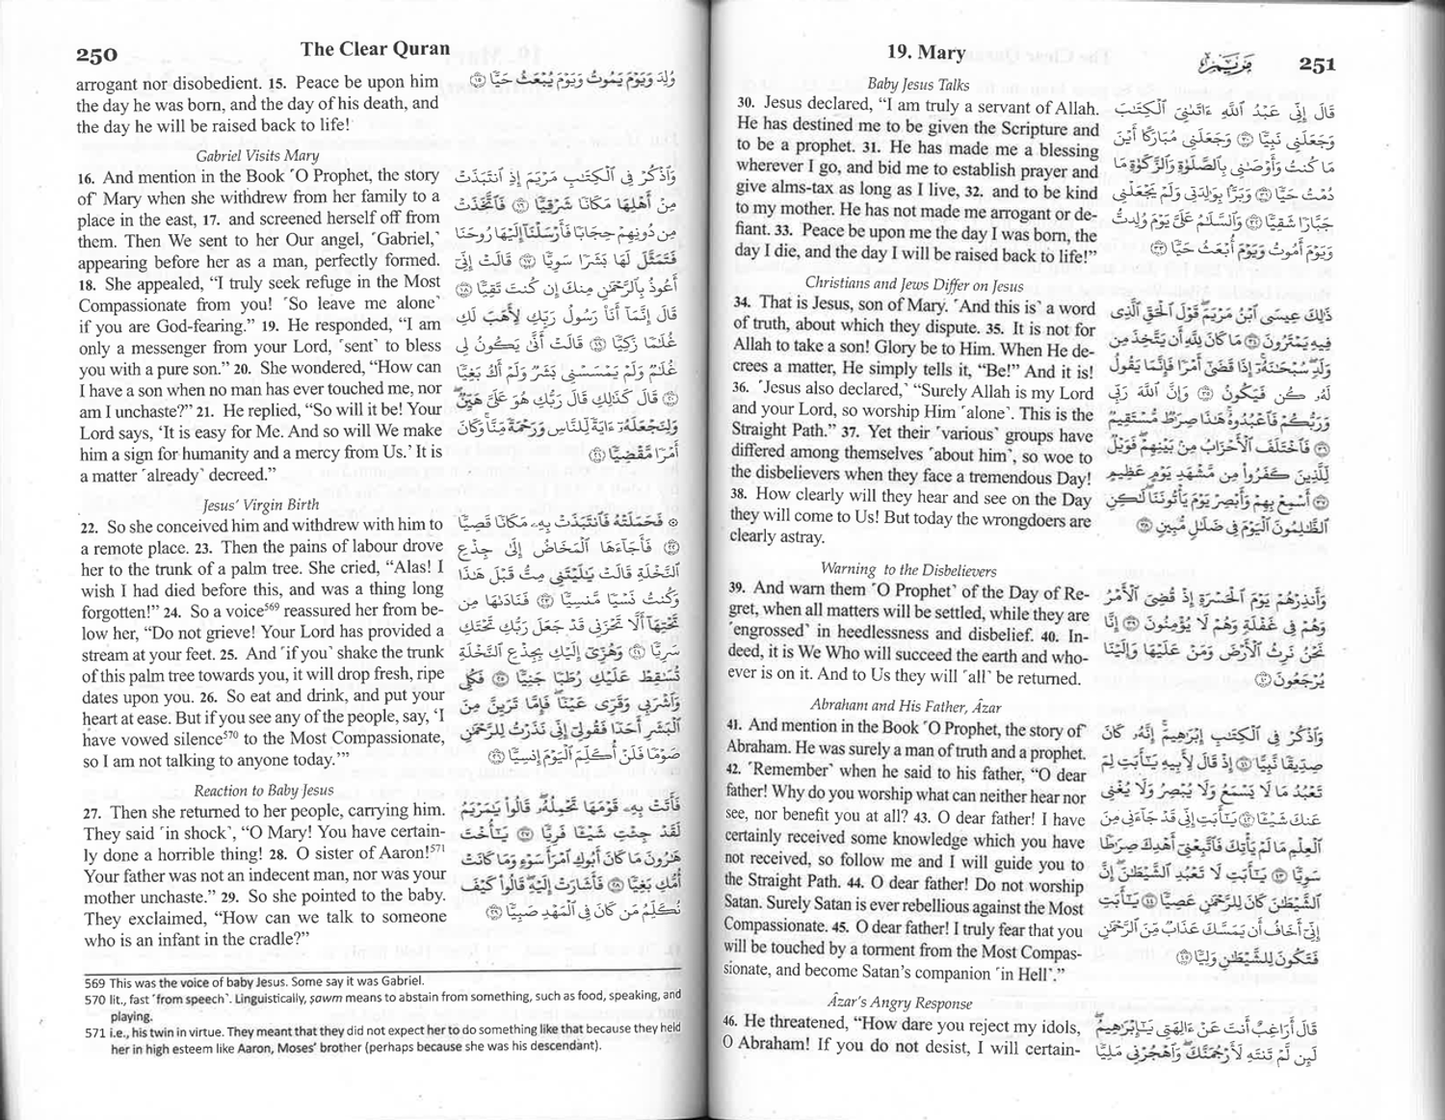 250
The Clear Quran
arrogant nor disobedient. 15. Peace be upon him
the day he was born, and the day of his death, and
the day he will be raised back to life!
Gabriel Visits Mary
16. And mention in the Book ˹O Prophet, the story
of˺ Mary when she withdrew from her family to a
place in the east, 17. and screened herself off from
them. Then We sent to her Our angel, ˹Gabriel,˺
appearing before her as a man, perfectly formed.
18. She appealed, “I truly seek refuge in the Most
Compassionate from you! ˹So leave me alone˺
if you are God-fearing.” 19. He responded, “I am
only a messenger from your Lord, ˹sent˺ to bless
you with a pure son.” 20. She wondered, “How can
I have a son when no man has ever touched me, nor
am I unchaste?” 21. He replied, “So will it be! Your
Lord says, ‘It is easy for Me. And so will We make
him a sign for humanity and a mercy from Us.’ It is
a matter ˹already˺ decreed.”
Jesus’ Virgin Birth
22. So she conceived him and withdrew with him to
a remote place. 23. Then the pains of labour drove
her to the trunk of a palm tree. She cried, “Alas! I
wish I had died before this, and was a thing long
forgotten!” 24. So a voice569 reassured her from be-
low her, “Do not grieve! Your Lord has provided a
stream at your feet. 25. And ˹if you˺ shake the trunk
of this palm tree towards you, it will drop fresh, ripe
dates upon you. 26. So eat and drink, and put your
heart at ease. But if you see any of the people, say, ‘I
have vowed silence570 to the Most Compassionate,
so I am not talking to anyone today.’”
Reaction to Baby Jesus
27. Then she returned to her people, carrying him.
They said ˹in shock˺, “O Mary! You have certain-
ly done a horrible thing! 28. O sister of Aaron!571
Your father was not an indecent man, nor was your
mother unchaste.” 29. So she pointed to the baby.
They exclaimed, “How can we talk to someone
who is an infant in the cradle?”
وُلِدَ وَيَوْمَ يَمُوتُ وَيَوْمَ يُبْعَثُ حَيًّا ١٥
وَٱذْكُرْ فِى ٱلْكِتَـٰبِ مَرْيَمَ إِذِ ٱنتَبَذَتْ
مِنْ أَهْلِهَا مَكَانًا شَرْقِيًّا ١٦ فَٱتَّخَذَتْ
مِن دُونِهِمْ حِجَابًا فَأَرْسَلْنَآ إِلَيْهَا رُوحَنَا
فَتَمَثَّلَ لَهَا بَشَرًا سَوِيًّا ١٧ قَالَتْ إِنِّىٓ
أَعُوذُ بِٱلرَّحْمَـٰنِ مِنكَ إِن كُنتَ تَقِيًّا ١٨
قَالَ إِنَّمَآ أَنَا۠ رَسُولُ رَبِّكِ لِأَهَبَ لَكِ
غُلَـٰمًا زَكِيًّا ١٩ قَالَتْ أَنَّىٰ يَكُونُ لِى
غُلَـٰمٌ وَلَمْ يَمْسَسْنِى بَشَرٌ وَلَمْ أَكُ بَغِيًّا
٢٠ قَالَ كَذَٰلِكِ قَالَ رَبُّكِ هُوَ عَلَىَّ هَيِّنٌ ۖ
وَلِنَجْعَلَهُۥٓ ءَايَةً لِّلنَّاسِ وَرَحْمَةً مِّنَّا ۚ وَكَانَ
أَمْرًا مَّقْضِيًّا ٢١
۞ فَحَمَلَتْهُ فَٱنتَبَذَتْ بِهِۦ مَكَانًا قَصِيًّا
٢٢ فَأَجَآءَهَا ٱلْمَخَاضُ إِلَىٰ جِذْعِ
ٱلنَّخْلَةِ قَالَتْ يَـٰلَيْتَنِى مِتُّ قَبْلَ هَـٰذَا
وَكُنتُ نَسْيًا مَّنسِيًّا ٢٣ فَنَادَىٰهَا مِن
تَحْتِهَآ أَلَّا تَحْزَنِى قَدْ جَعَلَ رَبُّكِ تَحْتَكِ
سَرِيًّا ٢٤ وَهُزِّىٓ إِلَيْكِ بِجِذْعِ ٱلنَّخْلَةِ
تُسَـٰقِطْ عَلَيْكِ رُطَبًا جَنِيًّا ٢٥ فَكُلِى
وَٱشْرَبِى وَقَرِّى عَيْنًا ۖ فَإِمَّا تَرَيِنَّ مِنَ
ٱلْبَشَرِ أَحَدًا فَقُولِىٓ إِنِّى نَذَرْتُ لِلرَّحْمَـٰنِ
صَوْمًا فَلَنْ أُكَلِّمَ ٱلْيَوْمَ إِنسِيًّا ٢٦
فَأَتَتْ بِهِۦ قَوْمَهَا تَحْمِلُهُۥ ۖ قَالُوا۟ يَـٰمَرْيَمُ
لَقَدْ جِئْتِ شَيْـًٔا فَرِيًّا ٢٧ يَـٰٓأُخْتَ
هَـٰرُونَ مَا كَانَ أَبُوكِ ٱمْرَأَ سَوْءٍ وَمَا كَانَتْ
أُمُّكِ بَغِيًّا ٢٨ فَأَشَارَتْ إِلَيْهِ ۖ قَالُوا۟ كَيْفَ
نُكَلِّمُ مَن كَانَ فِى ٱلْمَهْدِ صَبِيًّا ٢٩
569 This was the voice of baby Jesus. Some say it was Gabriel.
570 lit., fast ˹from speech˺. Linguistically, ṣawm means to abstain from something, such as food, speaking, and
playing.
571 i.e., his twin in virtue. They meant that they did not expect her to do something like that because they held
her in high esteem like Aaron, Moses’ brother (perhaps because she was his descendant).
19. Mary
مريم
251
Baby Jesus Talks
30. Jesus declared, “I am truly a servant of Allah.
He has destined me to be given the Scripture and
to be a prophet. 31. He has made me a blessing
wherever I go, and bid me to establish prayer and
give alms-tax as long as I live, 32. and to be kind
to my mother. He has not made me arrogant or de-
fiant. 33. Peace be upon me the day I was born, the
day I die, and the day I will be raised back to life!”
Christians and Jews Differ on Jesus
34. That is Jesus, son of Mary. ˹And this is˺ a word
of truth, about which they dispute. 35. It is not for
Allah to take a son! Glory be to Him. When He de-
crees a matter, He simply tells it, “Be!” And it is!
36. ˹Jesus also declared,˺ “Surely Allah is my Lord
and your Lord, so worship Him ˹alone˺. This is the
Straight Path.” 37. Yet their ˹various˺ groups have
differed among themselves ˹about him˺, so woe to
the disbelievers when they face a tremendous Day!
38. How clearly will they hear and see on the Day
they will come to Us! But today the wrongdoers are
clearly astray.
Warning to the Disbelievers
39. And warn them ˹O Prophet˺ of the Day of Re-
gret, when all matters will be settled, while they are
˹engrossed˺ in heedlessness and disbelief. 40. In-
deed, it is We Who will succeed the earth and who-
ever is on it. And to Us they will ˹all˺ be returned.
Abraham and His Father, Âzar
41. And mention in the Book ˹O Prophet, the story of˺
Abraham. He was surely a man of truth and a prophet.
42. ˹Remember˺ when he said to his father, “O dear
father! Why do you worship what can neither hear nor
see, nor benefit you at all? 43. O dear father! I have
certainly received some knowledge which you have
not received, so follow me and I will guide you to
the Straight Path. 44. O dear father! Do not worship
Satan. Surely Satan is ever rebellious against the Most
Compassionate. 45. O dear father! I truly fear that you
will be touched by a torment from the Most Compas-
sionate, and become Satan’s companion ˹in Hell˺.”
Âzar’s Angry Response
46. He threatened, “How dare you reject my idols,
O Abraham! If you do not desist, I will certain-
قَالَ إِنِّى عَبْدُ ٱللَّهِ ءَاتَىٰنِىَ ٱلْكِتَـٰبَ
وَجَعَلَنِى نَبِيًّا ٣٠ وَجَعَلَنِى مُبَارَكًا أَيْنَ
مَا كُنتُ وَأَوْصَـٰنِى بِٱلصَّلَوٰةِ وَٱلزَّكَوٰةِ مَا
دُمْتُ حَيًّا ٣١ وَبَرًّۢا بِوَٰلِدَتِى وَلَمْ يَجْعَلْنِى
جَبَّارًا شَقِيًّا ٣٢ وَٱلسَّلَـٰمُ عَلَىَّ يَوْمَ وُلِدتُّ
وَيَوْمَ أَمُوتُ وَيَوْمَ أُبْعَثُ حَيًّا ٣٣
ذَٰلِكَ عِيسَى ٱبْنُ مَرْيَمَ ۚ قَوْلَ ٱلْحَقِّ ٱلَّذِى
فِيهِ يَمْتَرُونَ ٣٤ مَا كَانَ لِلَّهِ أَن يَتَّخِذَ مِن
وَلَدٍ ۖ سُبْحَـٰنَهُۥٓ ۚ إِذَا قَضَىٰٓ أَمْرًا فَإِنَّمَا يَقُولُ
لَهُۥ كُن فَيَكُونُ ٣٥ وَإِنَّ ٱللَّهَ رَبِّى
وَرَبُّكُمْ فَٱعْبُدُوهُ ۚ هَـٰذَا صِرَٰطٌ مُّسْتَقِيمٌ
٣٦ فَٱخْتَلَفَ ٱلْأَحْزَابُ مِنۢ بَيْنِهِمْ ۖ فَوَيْلٌ
لِّلَّذِينَ كَفَرُوا۟ مِن مَّشْهَدِ يَوْمٍ عَظِيمٍ
٣٧ أَسْمِعْ بِهِمْ وَأَبْصِرْ يَوْمَ يَأْتُونَنَا ۖ لَـٰكِنِ
ٱلظَّـٰلِمُونَ ٱلْيَوْمَ فِى ضَلَـٰلٍ مُّبِينٍ ٣٨
وَأَنذِرْهُمْ يَوْمَ ٱلْحَسْرَةِ إِذْ قُضِىَ ٱلْأَمْرُ
وَهُمْ فِى غَفْلَةٍ وَهُمْ لَا يُؤْمِنُونَ ٣٩ إِنَّا
نَحْنُ نَرِثُ ٱلْأَرْضَ وَمَنْ عَلَيْهَا وَإِلَيْنَا
يُرْجَعُونَ ٤٠
وَٱذْكُرْ فِى ٱلْكِتَـٰبِ إِبْرَٰهِيمَ ۚ إِنَّهُۥ كَانَ
صِدِّيقًا نَّبِيًّا ٤١ إِذْ قَالَ لِأَبِيهِ يَـٰٓأَبَتِ لِمَ
تَعْبُدُ مَا لَا يَسْمَعُ وَلَا يُبْصِرُ وَلَا يُغْنِى
عَنكَ شَيْـًٔا ٤٢ يَـٰٓأَبَتِ إِنِّى قَدْ جَآءَنِى مِنَ
ٱلْعِلْمِ مَا لَمْ يَأْتِكَ فَٱتَّبِعْنِىٓ أَهْدِكَ صِرَٰطًا
سَوِيًّا ٤٣ يَـٰٓأَبَتِ لَا تَعْبُدِ ٱلشَّيْطَـٰنَ ۖ إِنَّ
ٱلشَّيْطَـٰنَ كَانَ لِلرَّحْمَـٰنِ عَصِيًّا ٤٤ يَـٰٓأَبَتِ
إِنِّىٓ أَخَافُ أَن يَمَسَّكَ عَذَابٌ مِّنَ ٱلرَّحْمَـٰنِ
فَتَكُونَ لِلشَّيْطَـٰنِ وَلِيًّا ٤٥
قَالَ أَرَاغِبٌ أَنتَ عَنْ ءَالِهَتِى يَـٰٓإِبْرَٰهِيمُ ۖ
لَئِن لَّمْ تَنتَهِ لَأَرْجُمَنَّكَ ۖ وَٱهْجُرْنِى مَلِيًّا